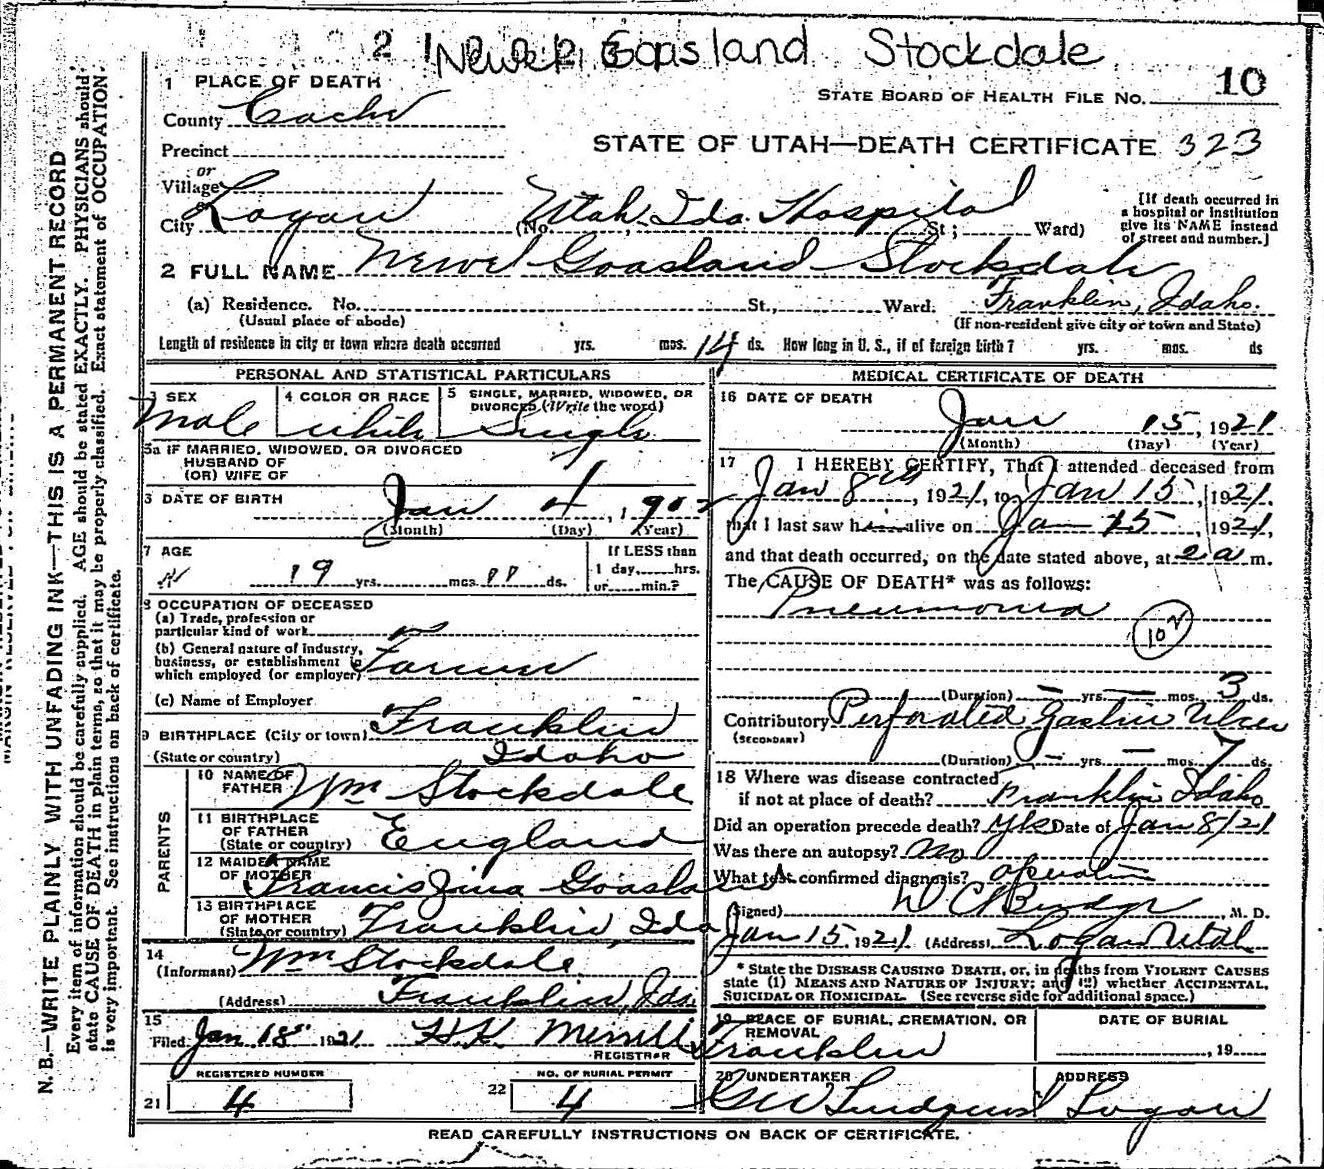 Goasland Stockdale
1 PLACE OF DEATH
10
STATE BOARD OF HEALTH FILE NO.
County Cache
STATE OF UTAH—DEATH CERTIFICATE 323
Precinct
or
Village
City Logan (No. Utah Ida. Hospital St; Ward)
[If death occurred in
a hospital or institution
give its NAME instead
of street and number.]
2 FULL NAME Newel Goasland Stockdale
(a) Residence. No. St., Ward. Franklin, Idaho.
(Usual place of abode)
(If non-resident give city or town and State)
Length of residence in city or town where death occurred yrs. mos. 14 ds. How long in U. S., if of foreign birth? yrs. mos. ds
PERSONAL AND STATISTICAL PARTICULARS
3 SEX
Male
4 COLOR OR RACE
white
5 SINGLE, MARRIED, WIDOWED, OR
DIVORCED (Write the word)
Single
5a IF MARRIED, WIDOWED, OR DIVORCED
HUSBAND OF
(OR) WIFE OF
DATE OF BIRTH
Jan 4, 1902
(Month) (Day) (Year)
7 AGE
19 yrs. mos. 11 ds.
If LESS than
1 day, hrs.
or min.?
8 OCCUPATION OF DECEASED
(a) Trade, profession or
particular kind of work
(b) General nature of industry,
business, or establishment in
which employed (or employer) Farmer
(c) Name of Employer
9 BIRTHPLACE (City or town) Franklin
(State or country) Idaho
PARENTS
10 NAME OF
FATHER Wm Stockdale
11 BIRTHPLACE
OF FATHER
(State or country) England
12 MAIDEN NAME
OF MOTHER Francis Goasland
13 BIRTHPLACE
OF MOTHER
(State or country) Franklin, Ida
14
(Informant) Wm Stockdale
(Address) Franklin, Ida.
15
Filed Jan 18 1921 H.K. Merrill
REGISTRAR
REGISTERED NUMBER
21 4
NO. OF BURIAL PERMIT
22 4
MEDICAL CERTIFICATE OF DEATH
16 DATE OF DEATH
Jan 15, 1921
(Month) (Day) (Year)
17 I HEREBY CERTIFY, That I attended deceased from
Jan 8th, 1921, to Jan 15, 1921.
that I last saw him alive on Jan 15, 1921,
and that death occurred, on the date stated above, at 2 a m.
The CAUSE OF DEATH* was as follows:
Pneumonia
(Duration) — yrs. — mos. 3 ds.
Contributory Perforated Gastric Ulcer
(SECONDARY)
(Duration) — yrs. — mos. 7 ds.
18 Where was disease contracted
if not at place of death? Franklin Idaho
Did an operation precede death? yes Date of Jan 8/21
Was there an autopsy? no
What test confirmed diagnosis? operation
(Signed) , M. D.
Jan 15, 1921. (Address) Logan Utah
* State the DISEASE CAUSING DEATH, or, in deaths from VIOLENT CAUSES
state (1) MEANS AND NATURE OF INJURY; and (2) whether ACCIDENTAL,
SUICIDAL OR HOMICIDAL. (See reverse side for additional space.)
19 PLACE OF BURIAL, CREMATION, OR
REMOVAL
Franklin
DATE OF BURIAL
, 19
20 UNDERTAKER
ADDRESS
Logan
READ CAREFULLY INSTRUCTIONS ON BACK OF CERTIFICATE.
N. B.—WRITE PLAINLY WITH UNFADING INK—THIS IS A PERMANENT RECORD
Every item of information should be carefully supplied. AGE should be stated EXACTLY. PHYSICIANS should
state CAUSE OF DEATH in plain terms, so that it may be properly classified. Exact statement of OCCUPATION
is very important. See instructions on back of certificate.